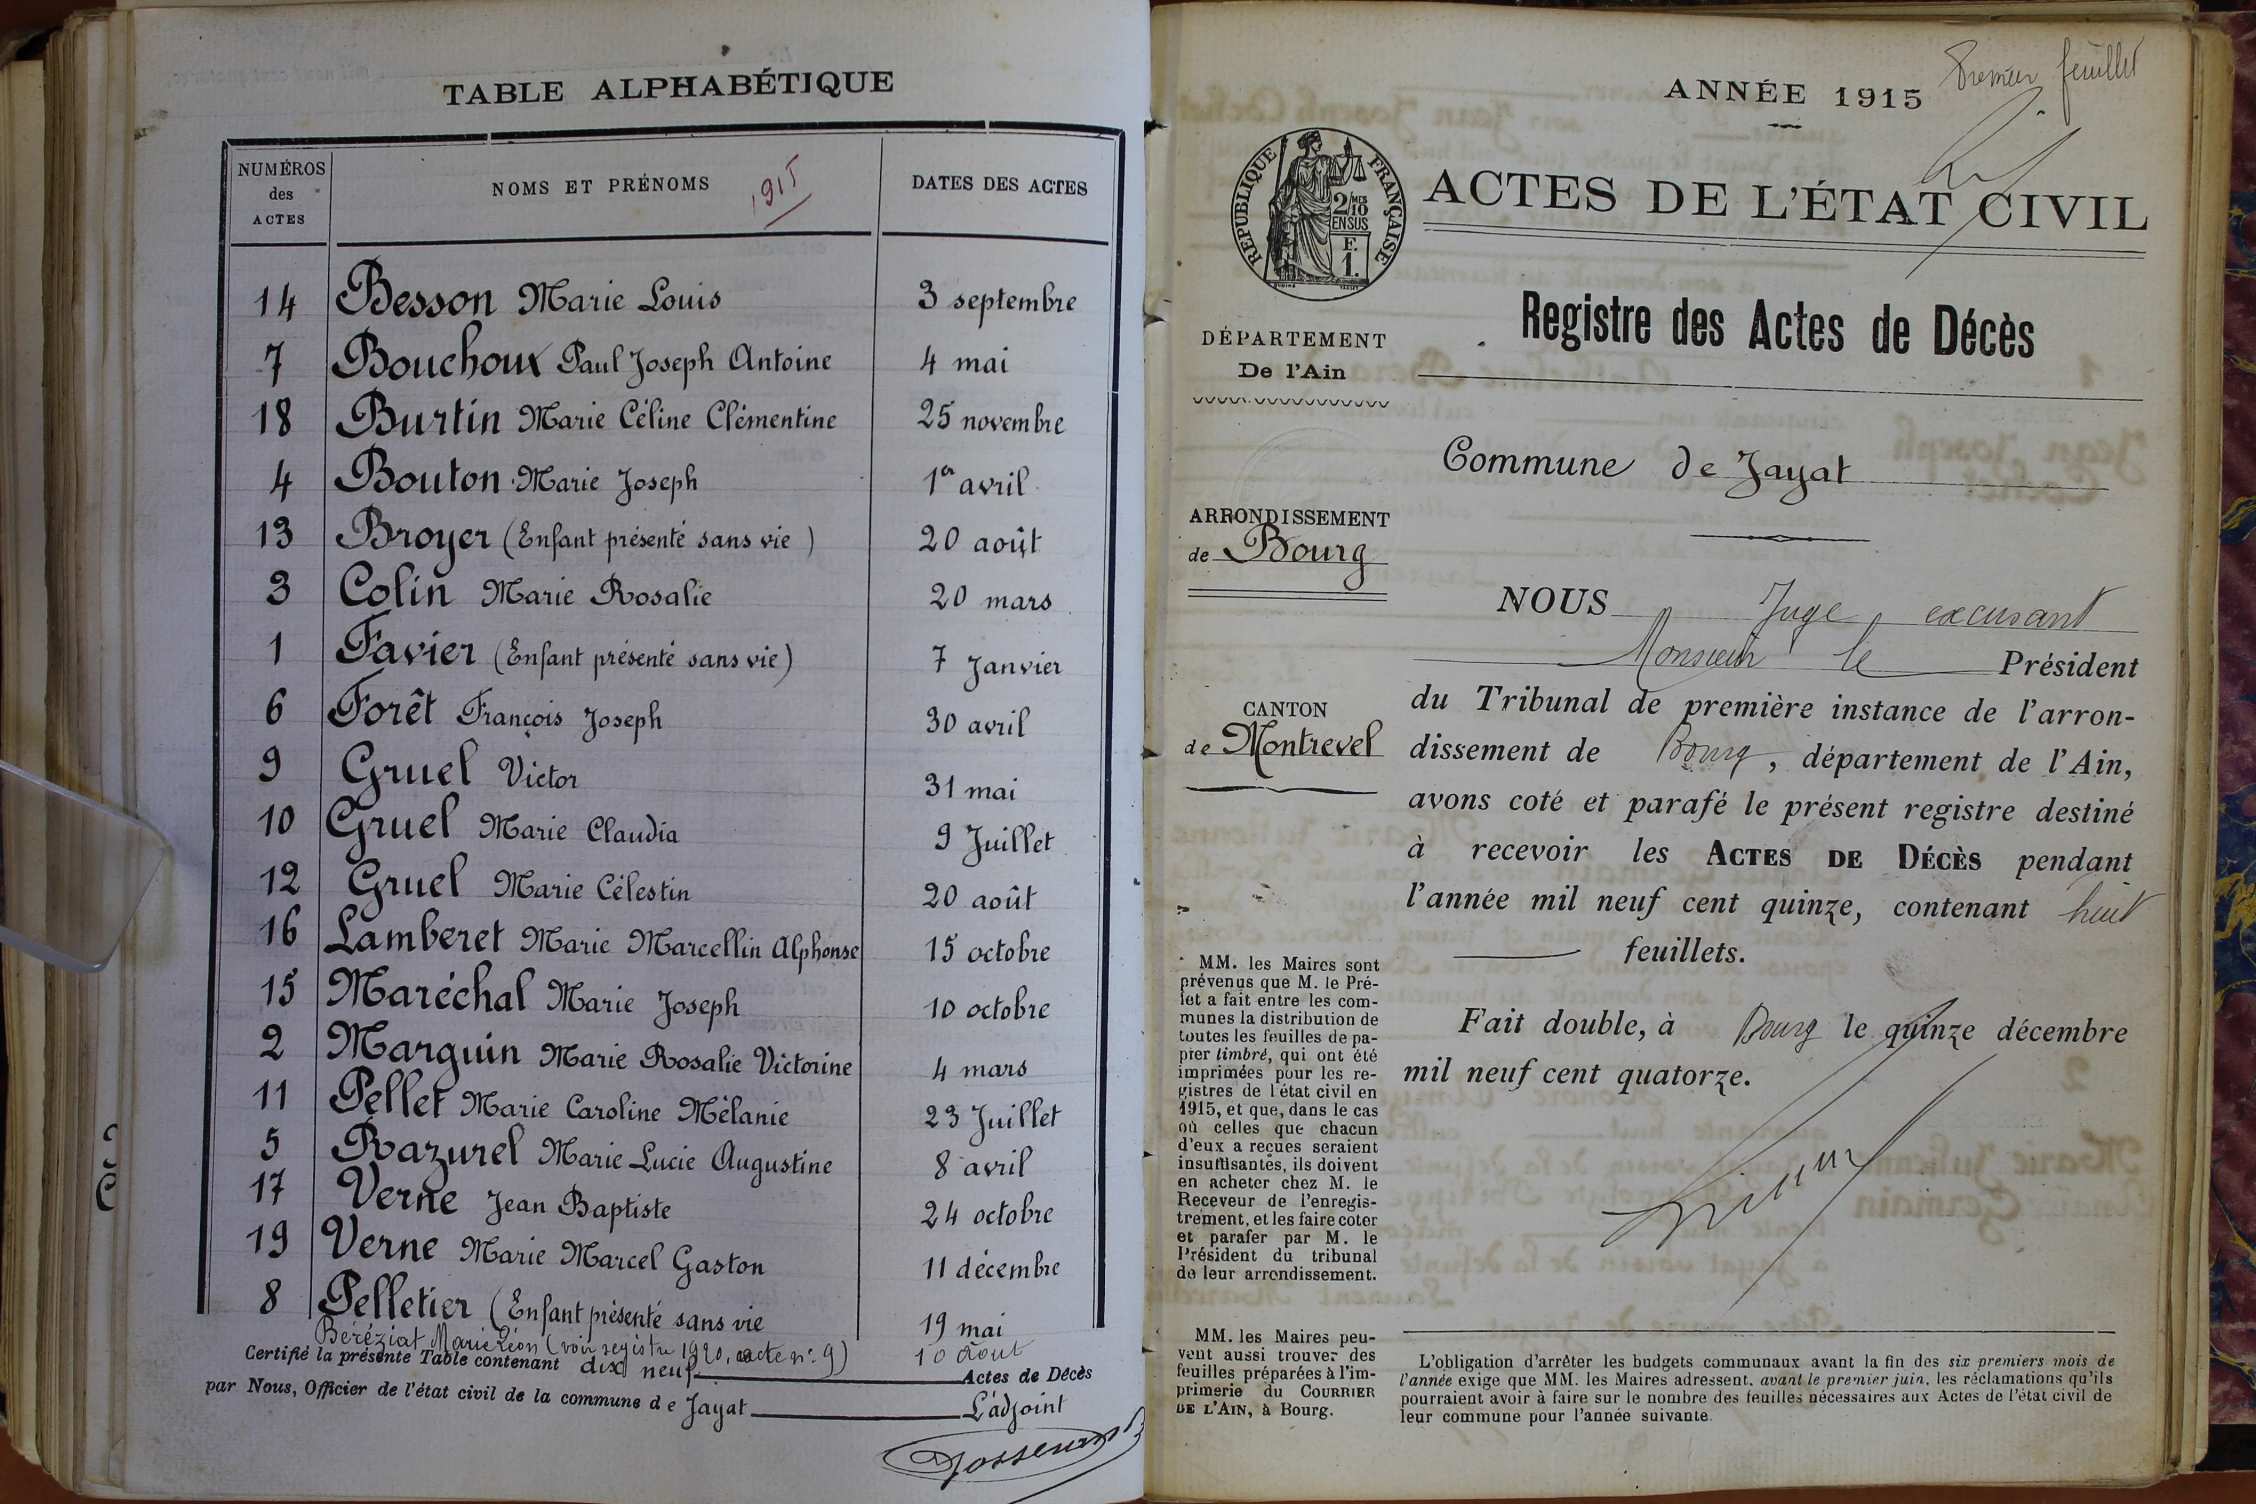 TABLE ALPHABÉTIQUE
NUMÉROS des ACTES
NOMS ET PRÉNOMS
1915
DATES DES ACTES
14 Besson Marie Louis 3 septembre
7 Bouchoux Paul Joseph Antoine 4 mai
18 Burtin Marie Céline Clémentine 25 novembre
4 Bouton Marie Joseph 1er avril
13 Broyer (Enfant présenté sans vie) 20 août
3 Colin Marie Rosalie 20 mars
1 Favier (Enfant présenté sans vie) 7 Janvier
6 Forêt François Joseph 30 avril
9 Gruel Victor 31 mai
10 Gruel Marie Claudia 9 Juillet
12 Gruel Marie Célestin 20 août
16 Lamberet Marie Marcellin Alphonse 15 octobre
15 Maréchal Marie Joseph 10 octobre
2 Marguin Marie Rosalie Victorine 4 mars
11 Pellet Marie Caroline Mélanie 23 Juillet
5 Razurel Marie Lucie Augustine 8 avril
17 Verne Jean Baptiste 24 octobre
19 Verne Marie Marcel Gaston 11 décembre
8 Pelletier (Enfant présenté sans vie 19 mai
Béréziat Marie Léon (voir registre 1920, acte n° 9) 10 Août
Certifié la présente Table contenant dix neuf Actes de Décès
par Nous, Officier de l'état civil de la commune de Jayat L'adjoint
Premier feuillet
ANNÉE 1915
RÉPUBLIQUE FRANÇAISE
2/10 MES
EN SUS
F.
1.
ACTES DE L'ÉTAT CIVIL
Registre des Actes de Décès
DÉPARTEMENT
De l'Ain
Commune de Jayat
ARRONDISSEMENT
de Bourg
CANTON
de Montrevel
NOUS Juge excusant
Monsieur le Président
du Tribunal de première instance de l'arron-
dissement de Bourg, département de l'Ain,
avons coté et parafé le présent registre destiné
à recevoir les ACTES DE DÉCÈS pendant
l'année mil neuf cent quinze, contenant huit
feuillets.
Fait double, à Bourg le quinze décembre
mil neuf cent quatorze.
MM. les Maires sont
prévenus que M. le Pré-
fet a fait entre les com-
munes la distribution de
toutes les feuilles de pa-
pier timbré, qui ont été
imprimées pour les re-
gistres de l'état civil en
1915, et que, dans le cas
où celles que chacun
d'eux a reçues seraient
insuffisantes, ils doivent
en acheter chez M. le
Receveur de l'enregis-
trement, et les faire coter
et parafer par M. le
Président du tribunal
de leur arrondissement.
MM. les Maires peu-
vent aussi trouver des
feuilles préparées à l'im-
primerie du COURRIER
DE L'AIN, à Bourg.
L'obligation d'arrêter les budgets communaux avant la fin des six premiers mois de
l'année exige que MM. les Maires adressent, avant le premier juin, les réclamations qu'ils
pourraient avoir à faire sur le nombre des feuilles nécessaires aux Actes de l'état civil de
leur commune pour l'année suivante.